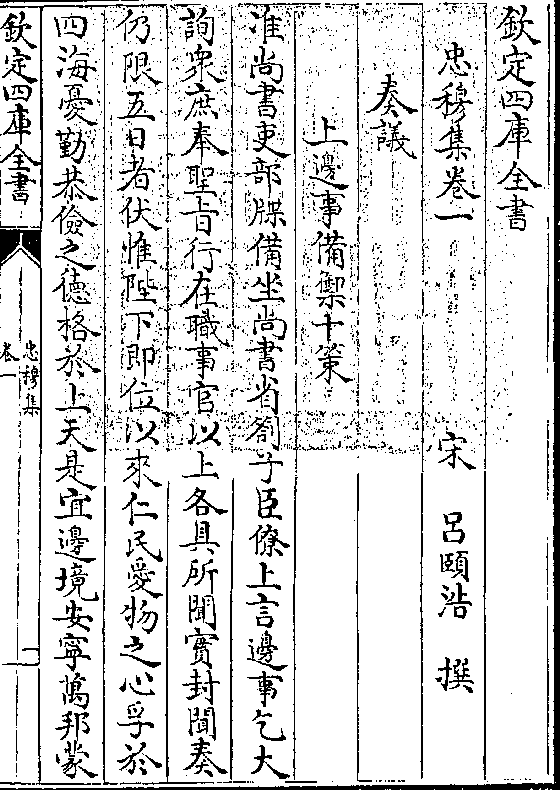 欽定四庫全書
忠穆集卷一
宋 呂頤浩 撰
奏議
上邊事備禦十策
准尚書吏部牒備坐尚書省劄子臣僚上言邊事乞大
詢衆庶奉聖旨行在職事官以上各具所聞實封聞奏
仍限五日者伏惟陛下即位以來仁民愛物之心孚於
四海憂勤恭儉之德格於上天是宜邊境安寧萬邦蒙
欽定四庫全書
忠穆集
卷一
一